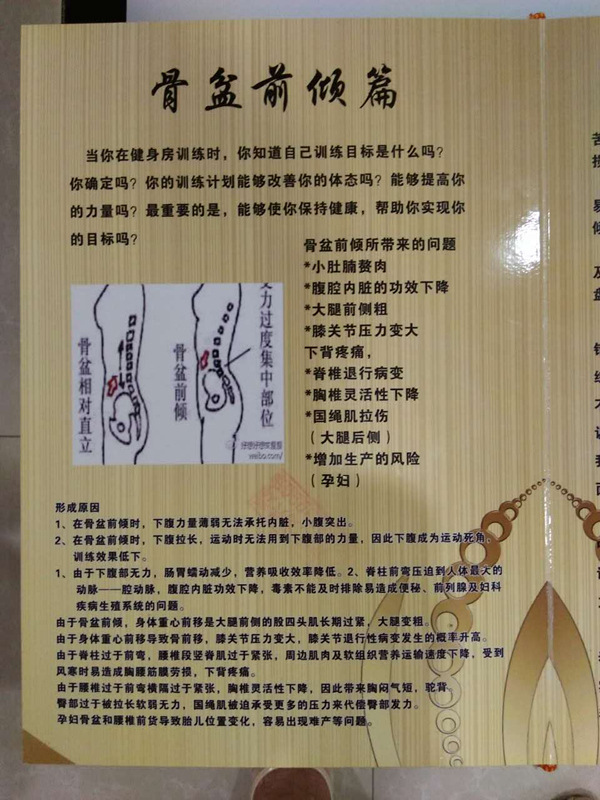 骨盆前倾篇
当你在健身房训练时，你知道自己训练目标是什么吗？
你确定吗？你的训练计划能够改善你的体态吗？能够提高你
的力量吗？最重要的是，能够使你保持健康，帮助你实现你
的目标吗？
骨盆前倾所带来的问题
*小肚腩赘肉
*腹腔内脏的功效下降
*大腿前侧粗
*膝关节压力变大
下背疼痛，
*脊椎退行病变
*胸椎灵活性下降
*国绳肌拉伤
（大腿后侧）
*增加生产的风险
（孕妇）
骨盆相对直立
骨盆前倾
力过度集中部位
weibo.com/
形成原因
1、在骨盆前倾时，下腹力量薄弱无法承托内脏，小腹突出。
2、在骨盆前倾时，下腹拉长，运动时无法用到下腹部的力量，因此下腹成为运动死角，
训练效果低下。
1、由于下腹部无力，肠胃蠕动减少，营养吸收效率降低。2、脊柱前弯压迫到人体最大的
动脉——腔动脉，腹腔内脏功效下降，毒素不能及时排除易造成便秘、前列腺及妇科
疾病生殖系统的问题。
由于骨盆前倾，身体重心前移是大腿前侧的股四头肌长期过紧，大腿变粗。
由于身体重心前移导致骨前移，膝关节压力变大，膝关节退行性病变发生的概率升高。
由于脊柱过于前弯，腰椎段竖脊肌过于紧张，周边肌肉及软组织营养运输速度下降，受到
风寒时易造成胸腰筋膜劳损，下背疼痛。
由于腰椎过于前弯横隔过于紧张，胸椎灵活性下降，因此带来胸闷气短，驼背。
臀部过于被拉长软弱无力，国绳肌被迫承受更多的压力来代偿臀部发力。
孕妇骨盆和腰椎前货导致胎儿位置变化，容易出现难产等问题。